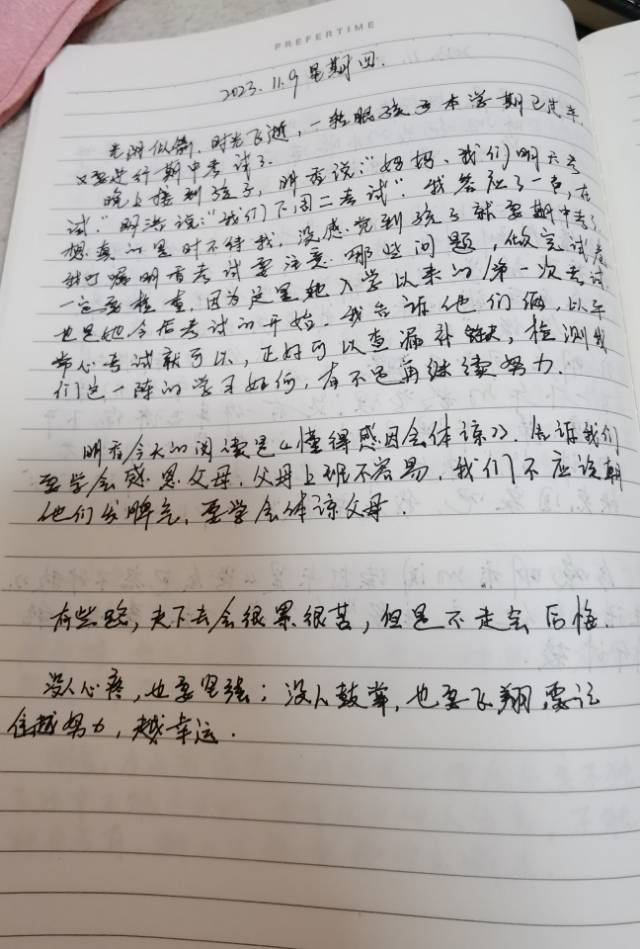 PREFERTIME
2023.11.9 星期四.
光阴似箭、时光飞逝,一转眼孩子本学期已过半,
又要进行期中考试了.
晚上接到孩子,明香说:"妈妈,我们明天考
试."明浩说:"我们下周二考试".我答应了一声,在
想真的是时不待我,没感觉到孩子就要期中考了
我叮嘱明香考试要注意哪些问题,做完试卷
一定要检查,因为这是她入学以来的第一次考试
也是她今后考试的开始.我告诉他们俩,以平
常心考试就可以,正好可以查漏补缺,检测我
们这一阵的学习如何,有不足再继续努力.
明香今天的阅读是《懂得感恩会体谅》.告诉我们
要学会感恩父母,父母上班不容易,我们不应该朝
他们发脾气,要学会体谅父母.
有些路,走下去会很累很苦,但是不走会后悔.
没人心疼,也要坚强;没人鼓掌,也要飞翔,要记
住越努力,越幸运.